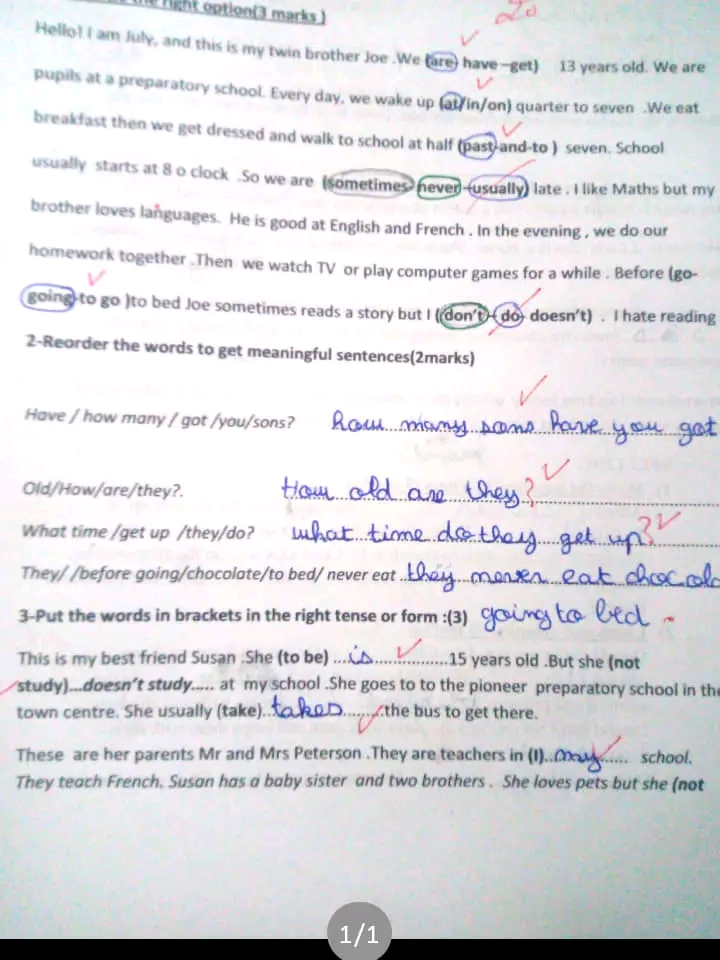 right option(3 marks )
20
Hello! I am July, and this is my twin brother Joe .We (are) have –get) 13 years old. We are
pupils at a preparatory school. Every day, we wake up (at/in/on) quarter to seven .We eat
breakfast then we get dressed and walk to school at half (past-and-to ) seven. School
usually starts at 8 o clock .So we are (sometimes never -usually) late . I like Maths but my
brother loves languages. He is good at English and French . In the evening , we do our
homework together .Then we watch TV or play computer games for a while . Before (go-
going-to go )to bed Joe sometimes reads a story but I (don't - do- doesn't) . I hate reading
2-Reorder the words to get meaningful sentences(2marks)
Have / how many / got /you/sons? how many sons have you got
Old/How/are/they?. How old are they?
What time /get up /they/do? what time do they get up?
They/ /before going/chocolate/to bed/ never eat they never eat chocola
3-Put the words in brackets in the right tense or form :(3) going to bed
This is my best friend Susan .She (to be) ...is...15 years old .But she (not
study)...doesn't study..... at my school .She goes to to the pioneer preparatory school in the
town centre. She usually (take)..takes.......the bus to get there.
These are her parents Mr and Mrs Peterson .They are teachers in (I)..my...... school.
They teach French. Susan has a baby sister and two brothers . She loves pets but she (not
1/1